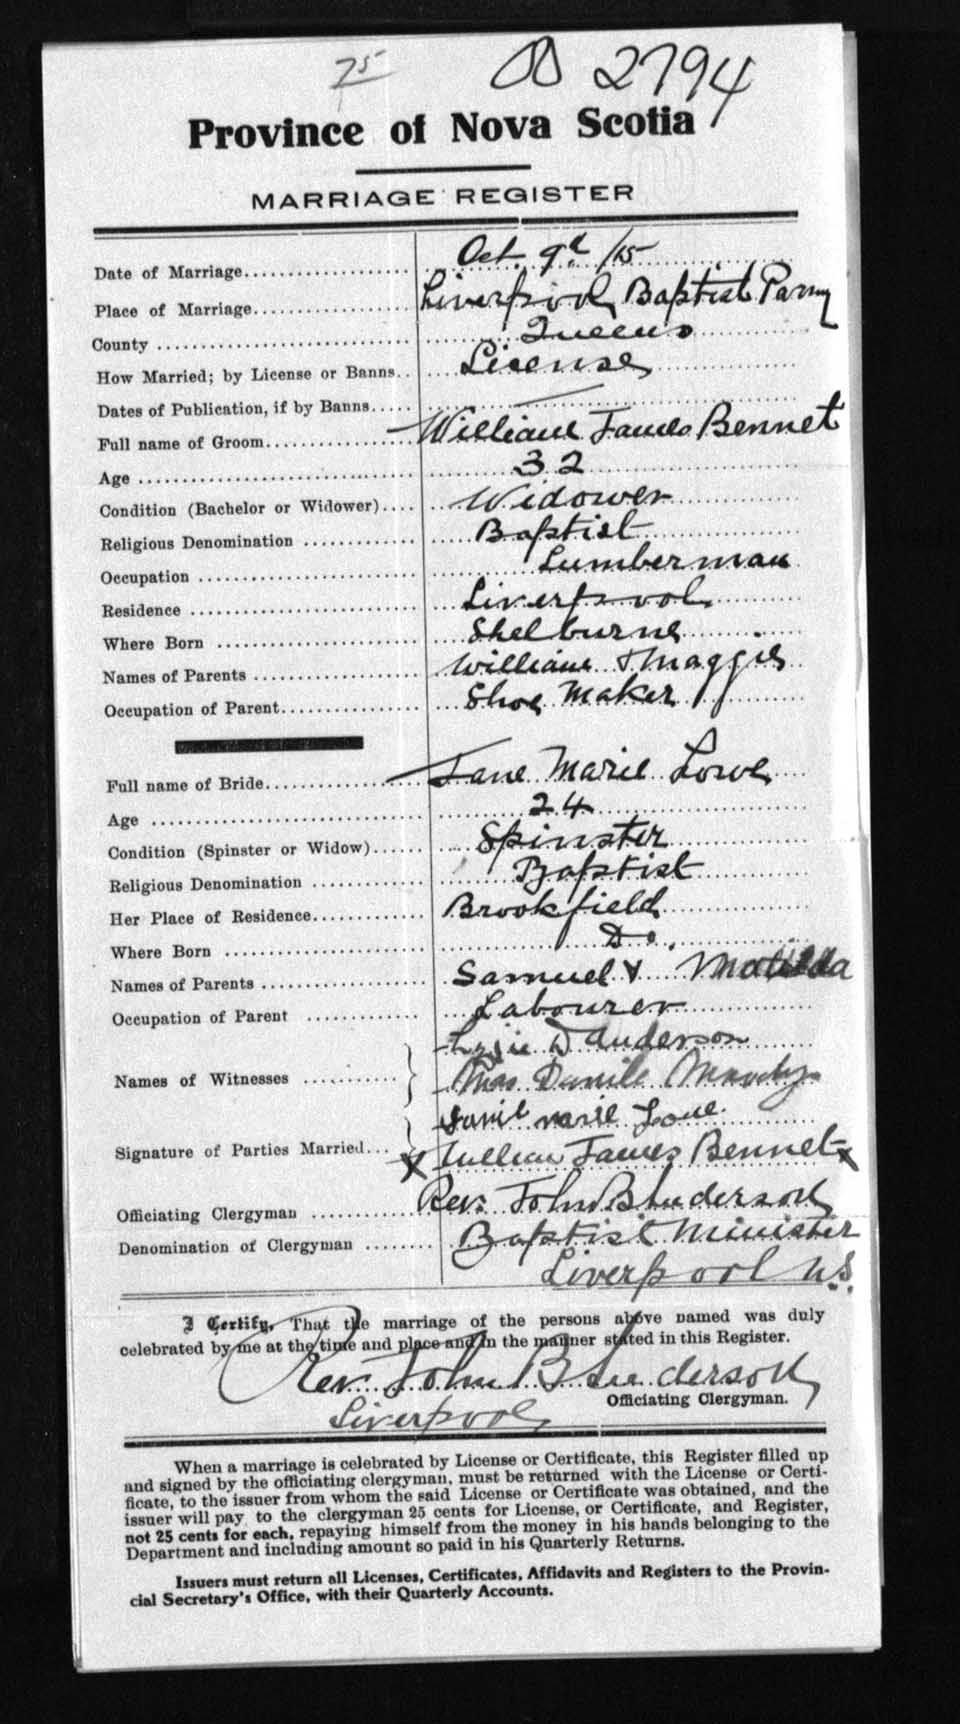 75
2794
Province of Nova Scotia
MARRIAGE REGISTER
Date of Marriage Oct. 9th /15
Place of Marriage Liverpool Baptist
County Queens
How Married; by License or Banns License
Dates of Publication, if by Banns
Full name of Groom William James Bennet
Age 32
Condition (Bachelor or Widower) Widower
Religious Denomination Baptist
Occupation Lumberman
Residence Liverpool
Where Born Shelburne
Names of Parents William & Maggie
Occupation of Parent Shoe Maker
Full name of Bride Jane Marie Lowe
Age 24
Condition (Spinster or Widow) Spinster
Religious Denomination Baptist
Her Place of Residence Brookfield
Where Born Do.
Names of Parents Samuel & Matilda
Occupation of Parent Labourer
Anderson
Names of Witnesses Mrs
Marie Lowe
Signature of Parties Married X William James Bennet X
Officiating Clergyman Rev. John B Anderson
Denomination of Clergyman Baptist Minister
Liverpool N.S.
I Certify, That the marriage of the persons above named was duly
celebrated by me at the time and place and in the manner stated in this Register.
Rev. John B Anderson
Officiating Clergyman.
Liverpool
When a marriage is celebrated by License or Certificate, this Register filled up
and signed by the officiating clergyman, must be returned with the License or Certi-
ficate, to the issuer from whom the said License or Certificate was obtained, and the
issuer will pay to the clergyman 25 cents for License, or Certificate, and Register,
not 25 cents for each, repaying himself from the money in his hands belonging to the
Department and including amount so paid in his Quarterly Returns.
Issuers must return all Licenses, Certificates, Affidavits and Registers to the Provin-
cial Secretary's Office, with their Quarterly Accounts.